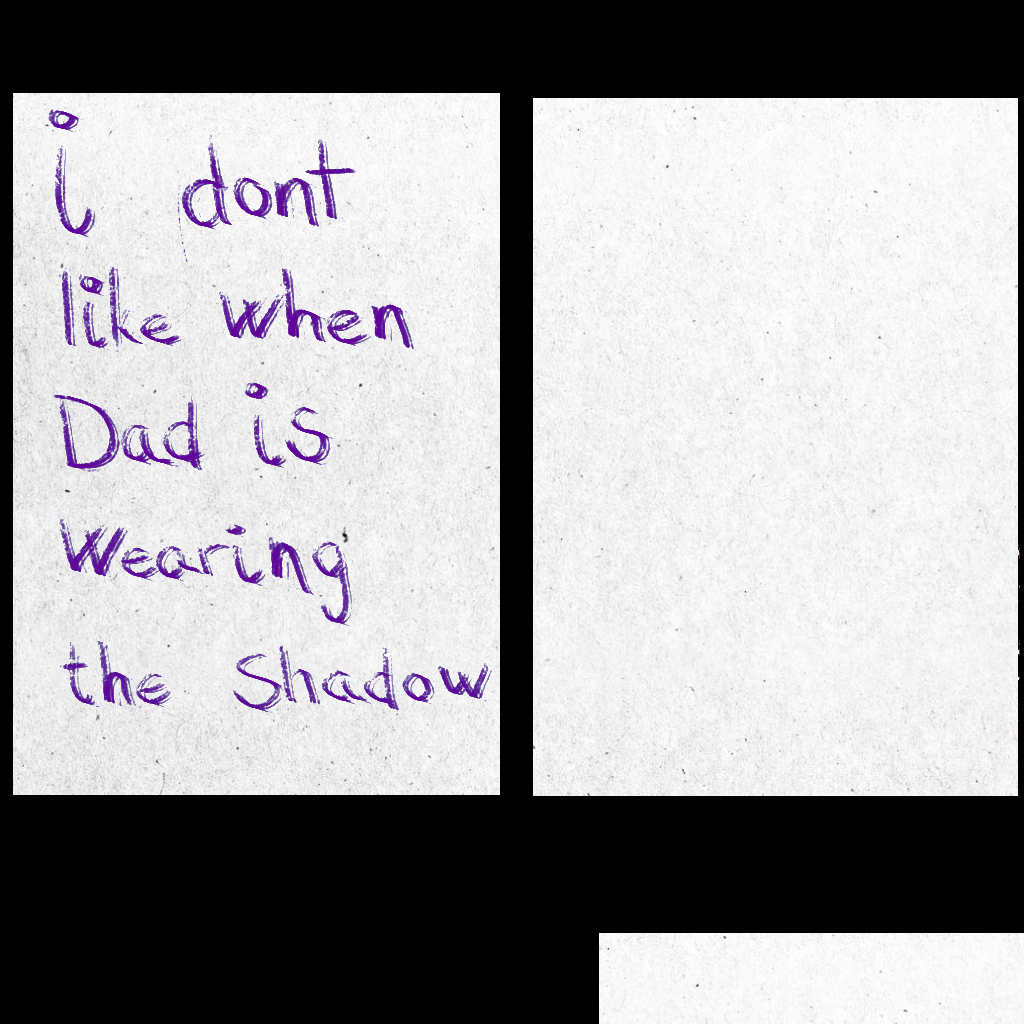 i dont
like when
Dad is
Wearing
the Shadow